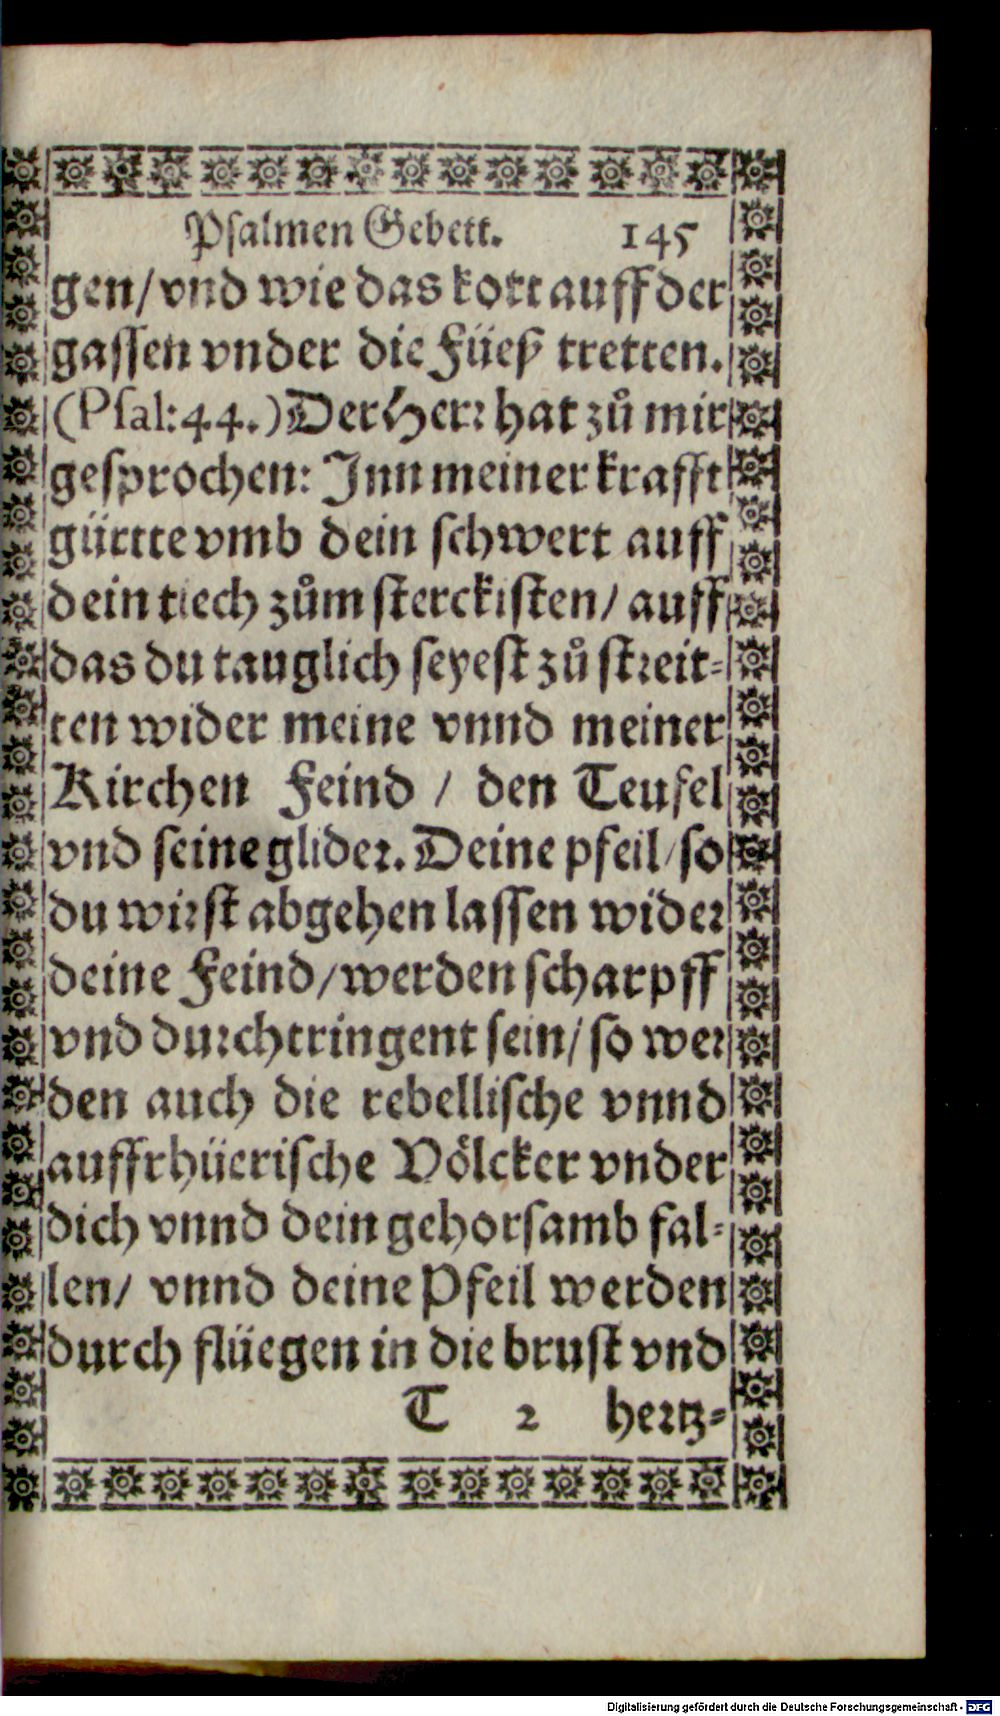 Psalmen Gebett. 145
gen/ vnd wie das kott auff der
gassen vnder die Füeß tretten.
(Psal: 44.) Der Herr hat zů mir
gesprochen: Jnn meiner krafft
gürtte vmb dein schwert auff
dein tiech zům sterckisten/ auff
das du tauglich seyest zů streit-
ten wider meine vnnd meiner
Kirchen Feind / den Teufel
vnd seine glider. Deine pfeil/ so
du wirst abgehen lassen wider
deine Feind/ werden scharpff
vnd durchtringent sein/ so wer
den auch die rebellische vnnd
auffrhüerische Völcker vnder
dich vnnd dein gehorsamb fal-
len/ vnnd deine Pfeil werden
durch flüegen in die brust vnd
T 2 hertz-
Digitalisierung gefördert durch die Deutsche Forschungsgemeinschaft - DFG